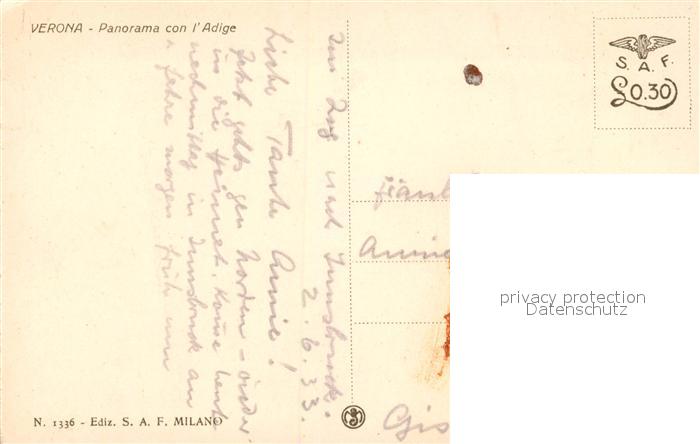 VERONA - Panorama con l'Adige
S. A. F.
£0.30
Im Zug nach Innsbruck.
2. 6. 33.
Liebe Tante Annie!
Jetzt gehts gen Norden - wieder
in die Heimat. Komme heute
nachmittag in Innsbruck an
u. fahre morgen früh
Annie
privacy protection
Datenschutz
N. 1336 - Ediz. S. A. F. MILANO